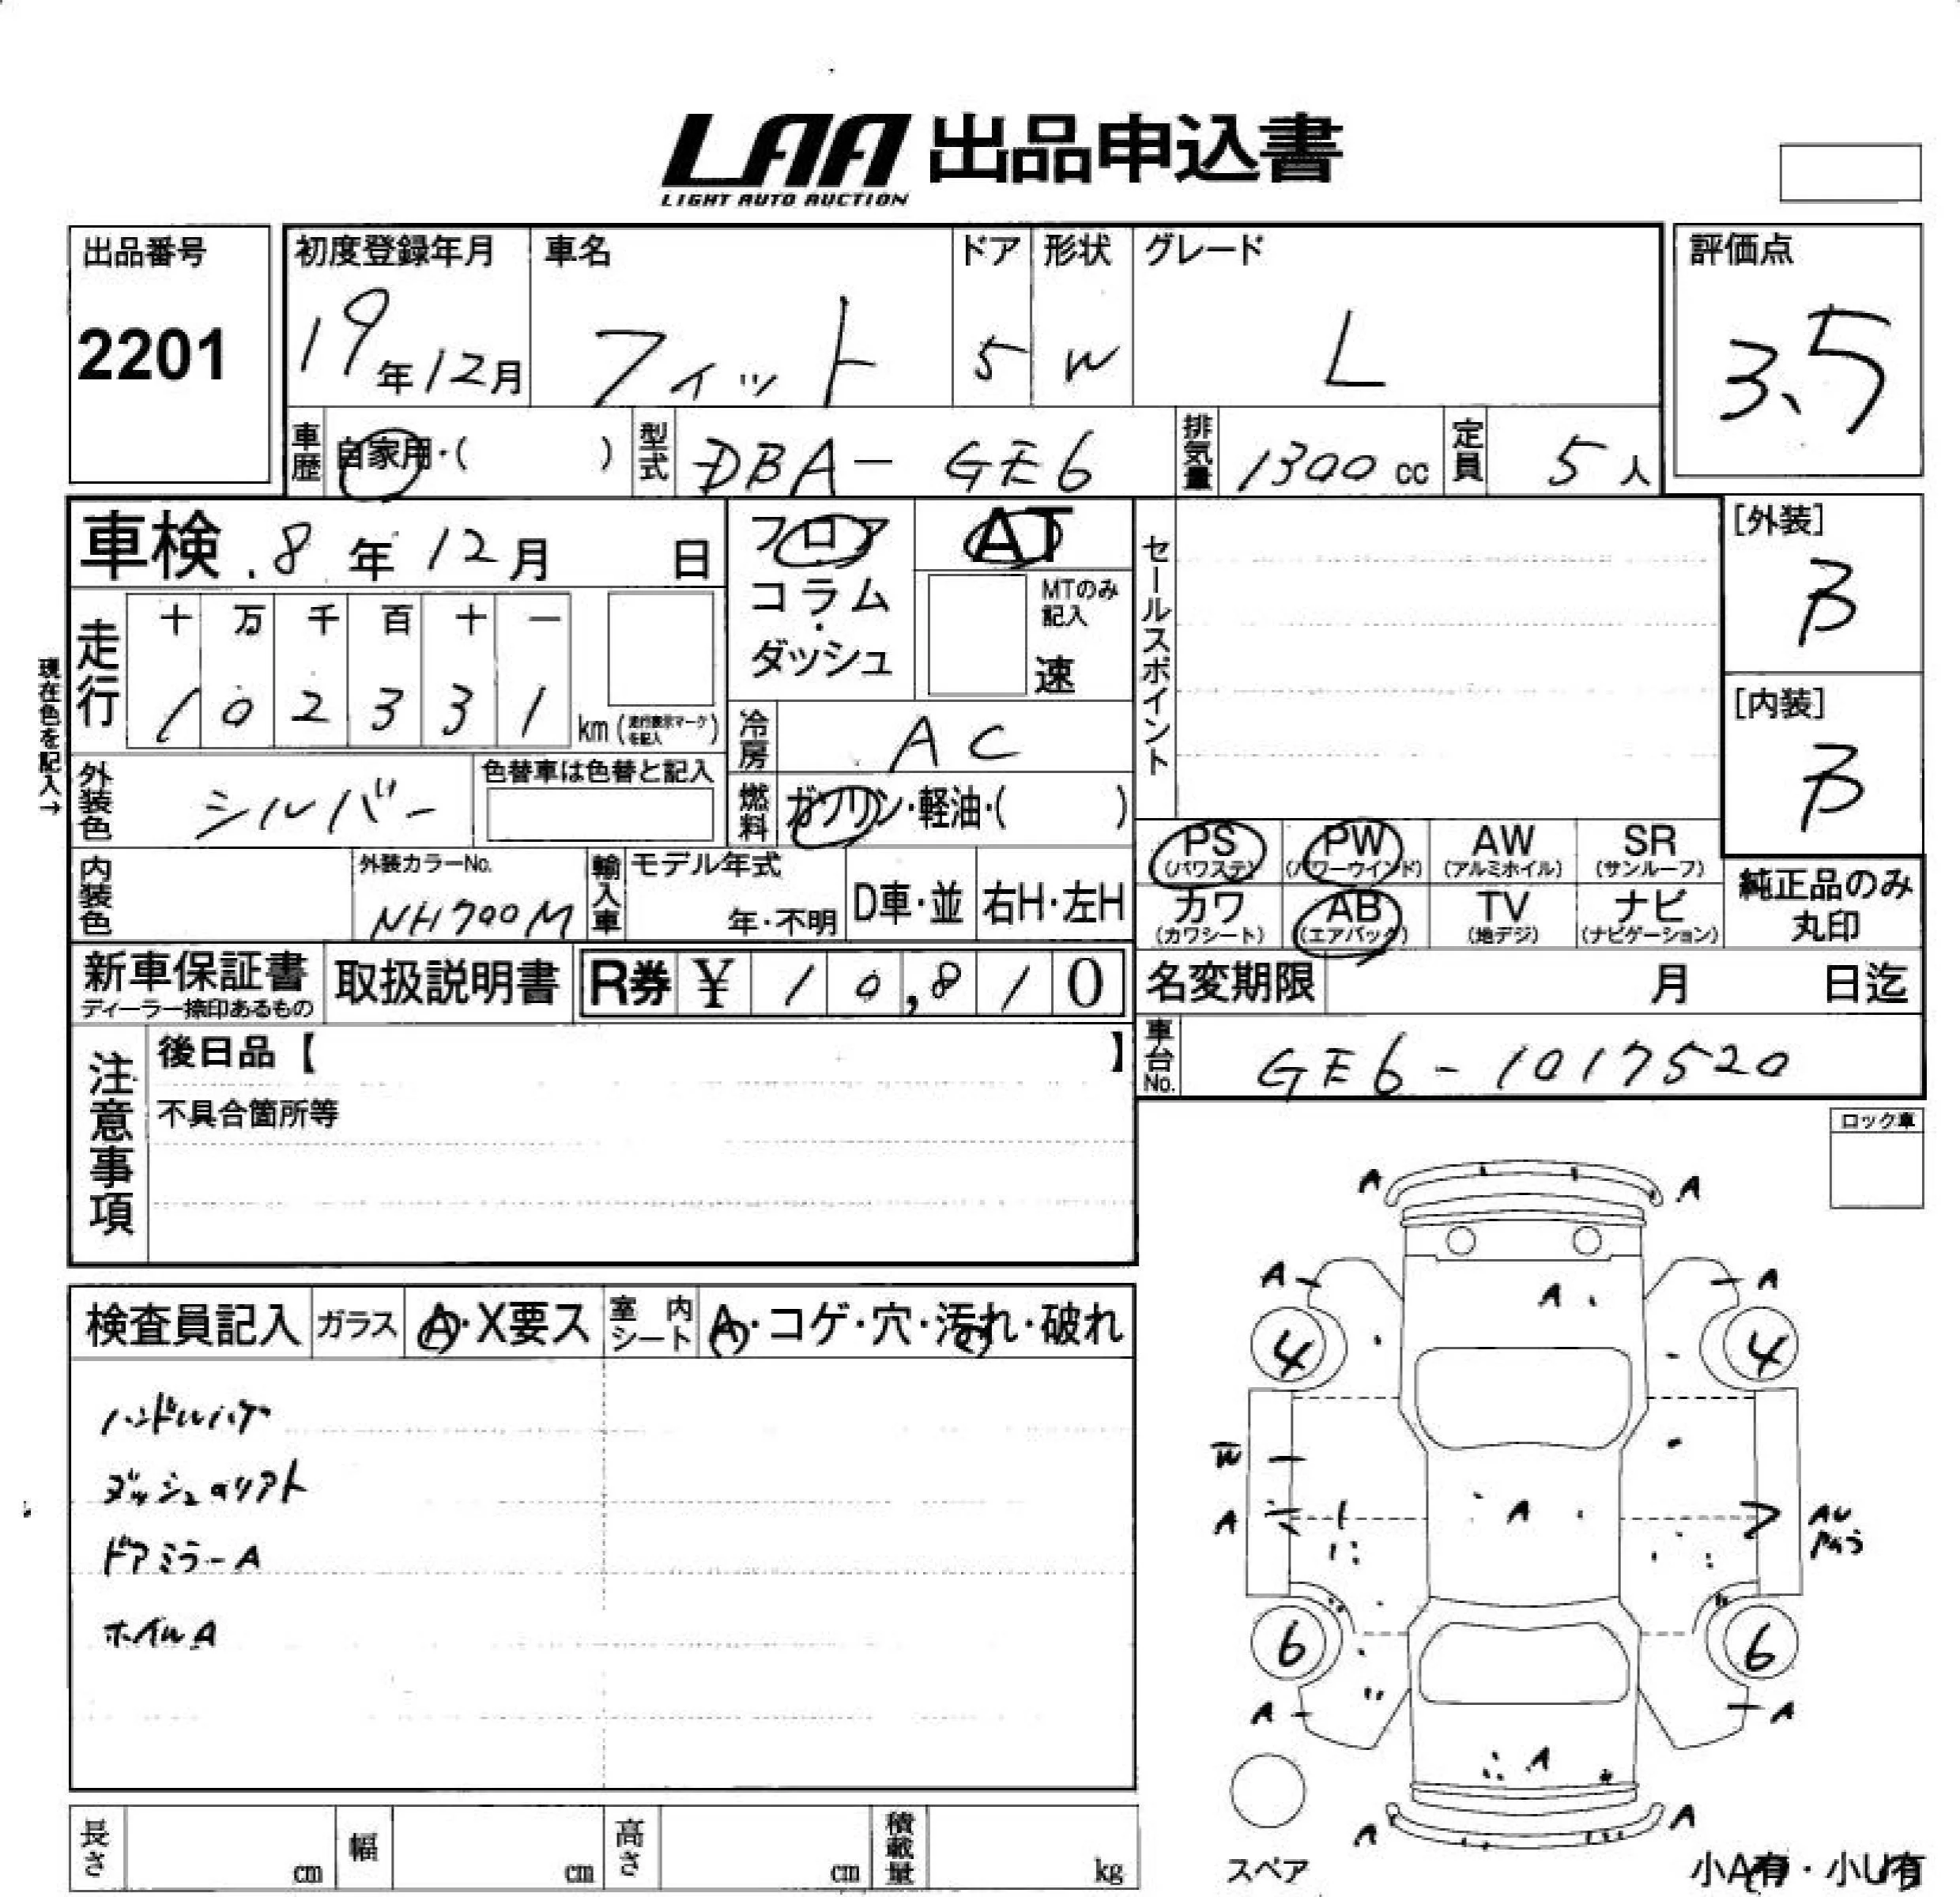 LAA 出品申込書
LIGHT AUTO AUCTION
出品番号
2201
初度登録年月
19年12月
車名
フィット
ドア
5
形状
W
グレード
L
評価点
3.5
車歴
自家用・( )
型式
DBA- GE6
排気量
1300 cc
定員
5 人
車検 8 年 12 月 日
フロア
コラム
・
ダッシュ
AT
MTのみ
記入
速
セールスポイント
[外装]
B
[内装]
B
現在色を記入→
走行
十 万 千 百 十 一
1 0 2 3 3 1
km (走行表示マークを記入)
冷房
AC
外装色
シルバー
色替車は色替と記入
燃料
ガソリン・軽油・( )
PS (パワステ)
PW (パワーウインド)
AW (アルミホイル)
SR (サンルーフ)
内装色
外装カラーNo.
NH700M
輸入車
モデル年式
年・不明
D車・並
右H・左H
カワ (カワシート)
AB (エアバック)
TV (地デジ)
ナビ (ナビゲーション)
純正品のみ
丸印
新車保証書
ディーラー捺印あるもの
取扱説明書
R券 ¥ 10,810
名変期限 月 日迄
注意事項
後日品【 】
不具合箇所等
車台No.
GE6-1017520
ロック車
検査員記入
ガラス
A・X要ス
室内シート
A・コゲ・穴・汚れ・破れ
ハンドルハゲ
ダッシュ
ドアミラーA
ホイルA
A A
A A
A
4 4
W
A A AU
6 6
A A
A
A A
スペア
小A有・小U有
長さ cm
幅 cm
高さ cm
積載量 kg